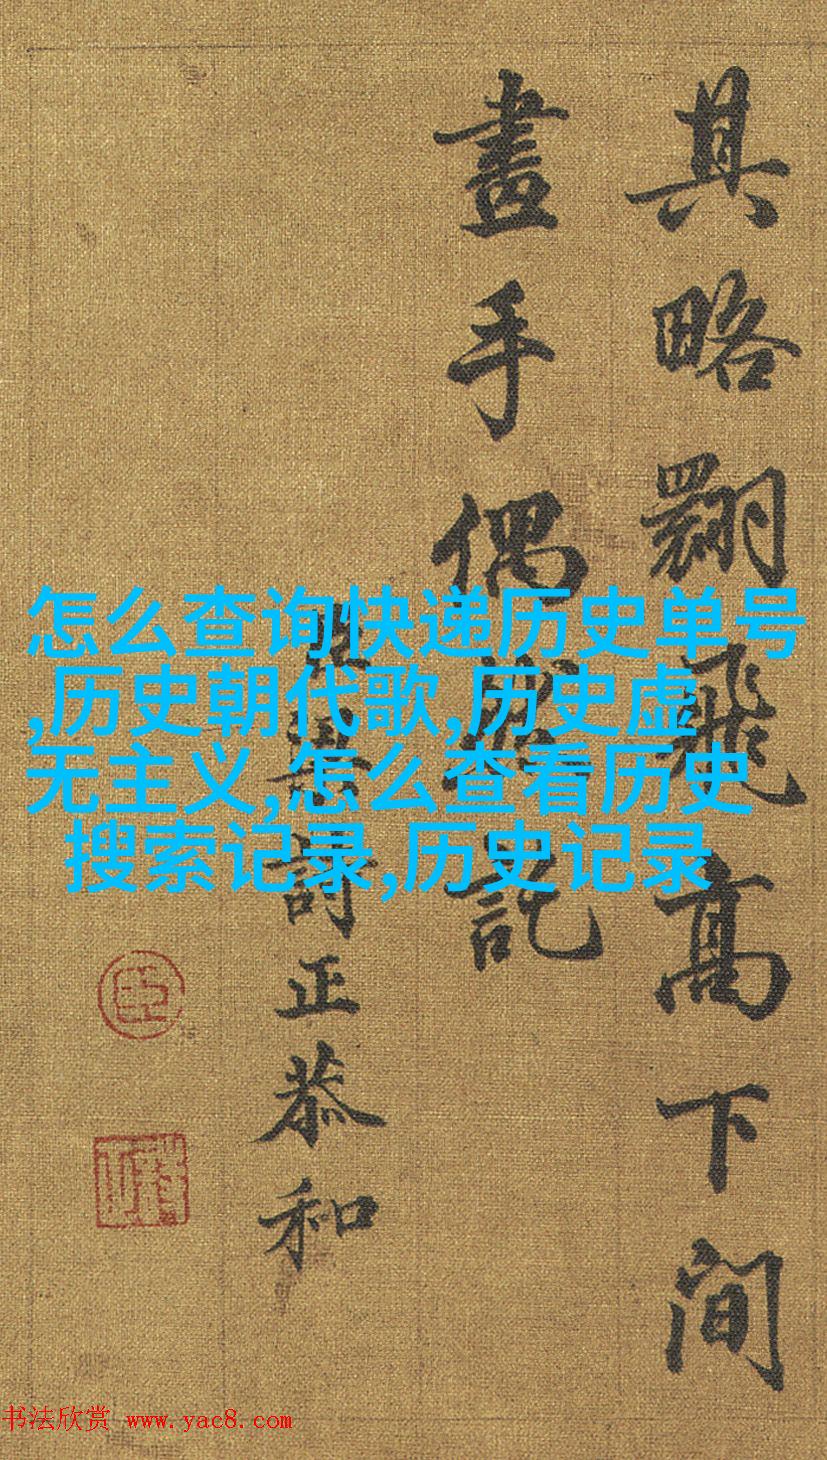 其略翾飛高下間
畫手偶記
詩正恭和
臣
怎么查询快递历史单号
,历史朝代歌,历史虚
无主义,怎么查看历史
搜索记录,历史记录
书法欣赏 www.yac8.com